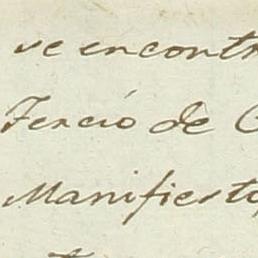 se encontr
Tercio de C
Manifiesto